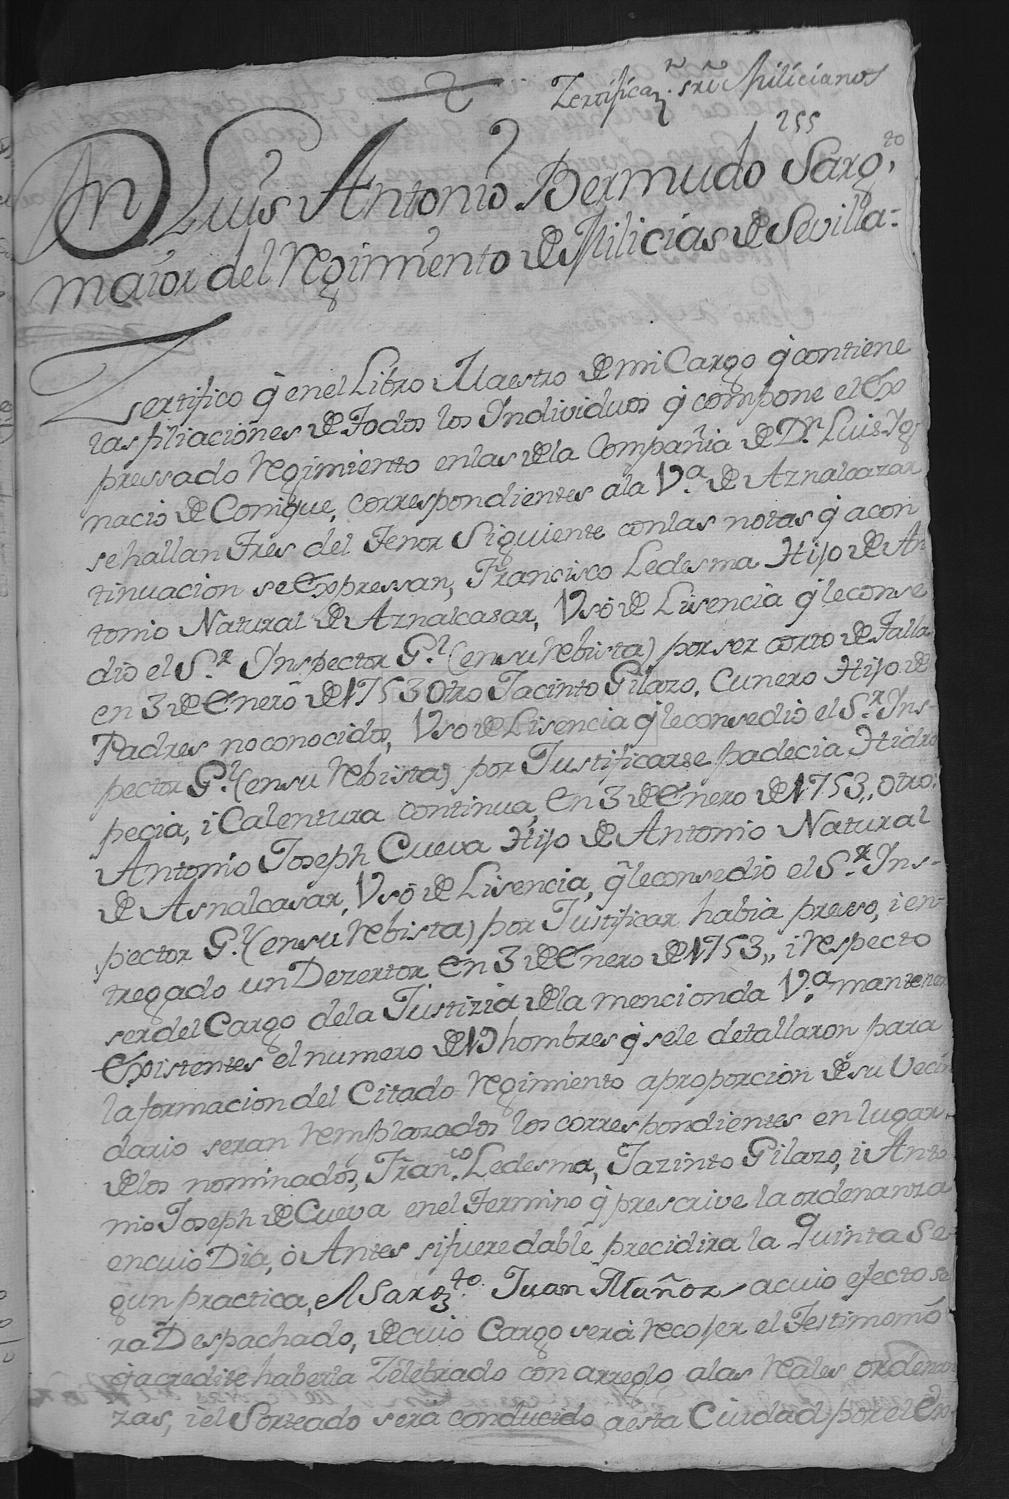 Zertificaz.n sre Milicianos
255
Dn Luis Antonio Bermudo Sarg.to
maior del Regimiento de Milicias de Sevilla =
Zertifico q̃ en el Libro Maestro de mi Cargo q̃ contiene
las filiaciones de Todos los Individuos q̃ compone el Ex
pressado Regimiento en las de la Compañia de Dn Luis Ig
nacio de Conique, correspondientes a la V.a de Aznalcazar
se hallan Tres del Tenor Siguiente con las notas q̃ a con
tinuacion se Expressan, Francisco Ledesma Hijo de An
tonio Natural de Aznalcasar, Vsó de Lisencia q̃ le conse
dio el S.r Inspector G.l (en su Rebista) por ser corto de Talla
en 3 de Enero de 1753 Otro Jacinto Gilazo, Cunero Hijo de
Padres no conocidos, Vso de Lisencia q̃ le consedio el S.r Ins-
pector G.l (en su Rebista) por Justificarse padecia Hidro
pecia, i Calentura continua, En 3 de Enero de 1753,, otro:
Antonio Joseph Cueva Hijo de Antonio Natural
de Asnalcasar, Vsó de Lisencia, q̃ le consedio el S.r Ins-
pector G.l (en su Rebista) por Justificar habia preso, i en-
tregado un Dezertor En 3 de Enero de 1753,, i Respecto
ser del Cargo de la Justizia de la mencionda V.a mantener
Existentes el numero de 19 hombres q̃ se le detallaron para
la formacion del Citado Regimiento a proporcion de su Vecin
dario seran Remplazados los correspondientes en lugar
de los nominados, Fran.co Ledesma, Jazinto Gilazo, i Anto
nio Joseph de Cueva en el Termino q̃ prescrive la ordenanza
en cuio Dia, ò Antes si fuere dable precidira la Quinta Se-
gun practica, el Sarg.to Juan Muñoz a cuio efecto se
ra Despachado, de cuio Cargo serà Recojer el Testimonio
q̃ acredite haberla Zelebrado con arreglo a las Reales ordenan
zas, i el Sorteado sera conducido a esta Ciudad por el Ex-